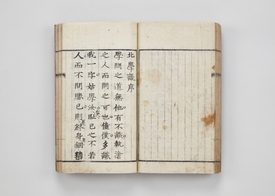 北學議序
學問之道無他有不識執塗
之人而問之可也僮僕多識
我一字姑學汝恥己之不若
人而不問勝己則